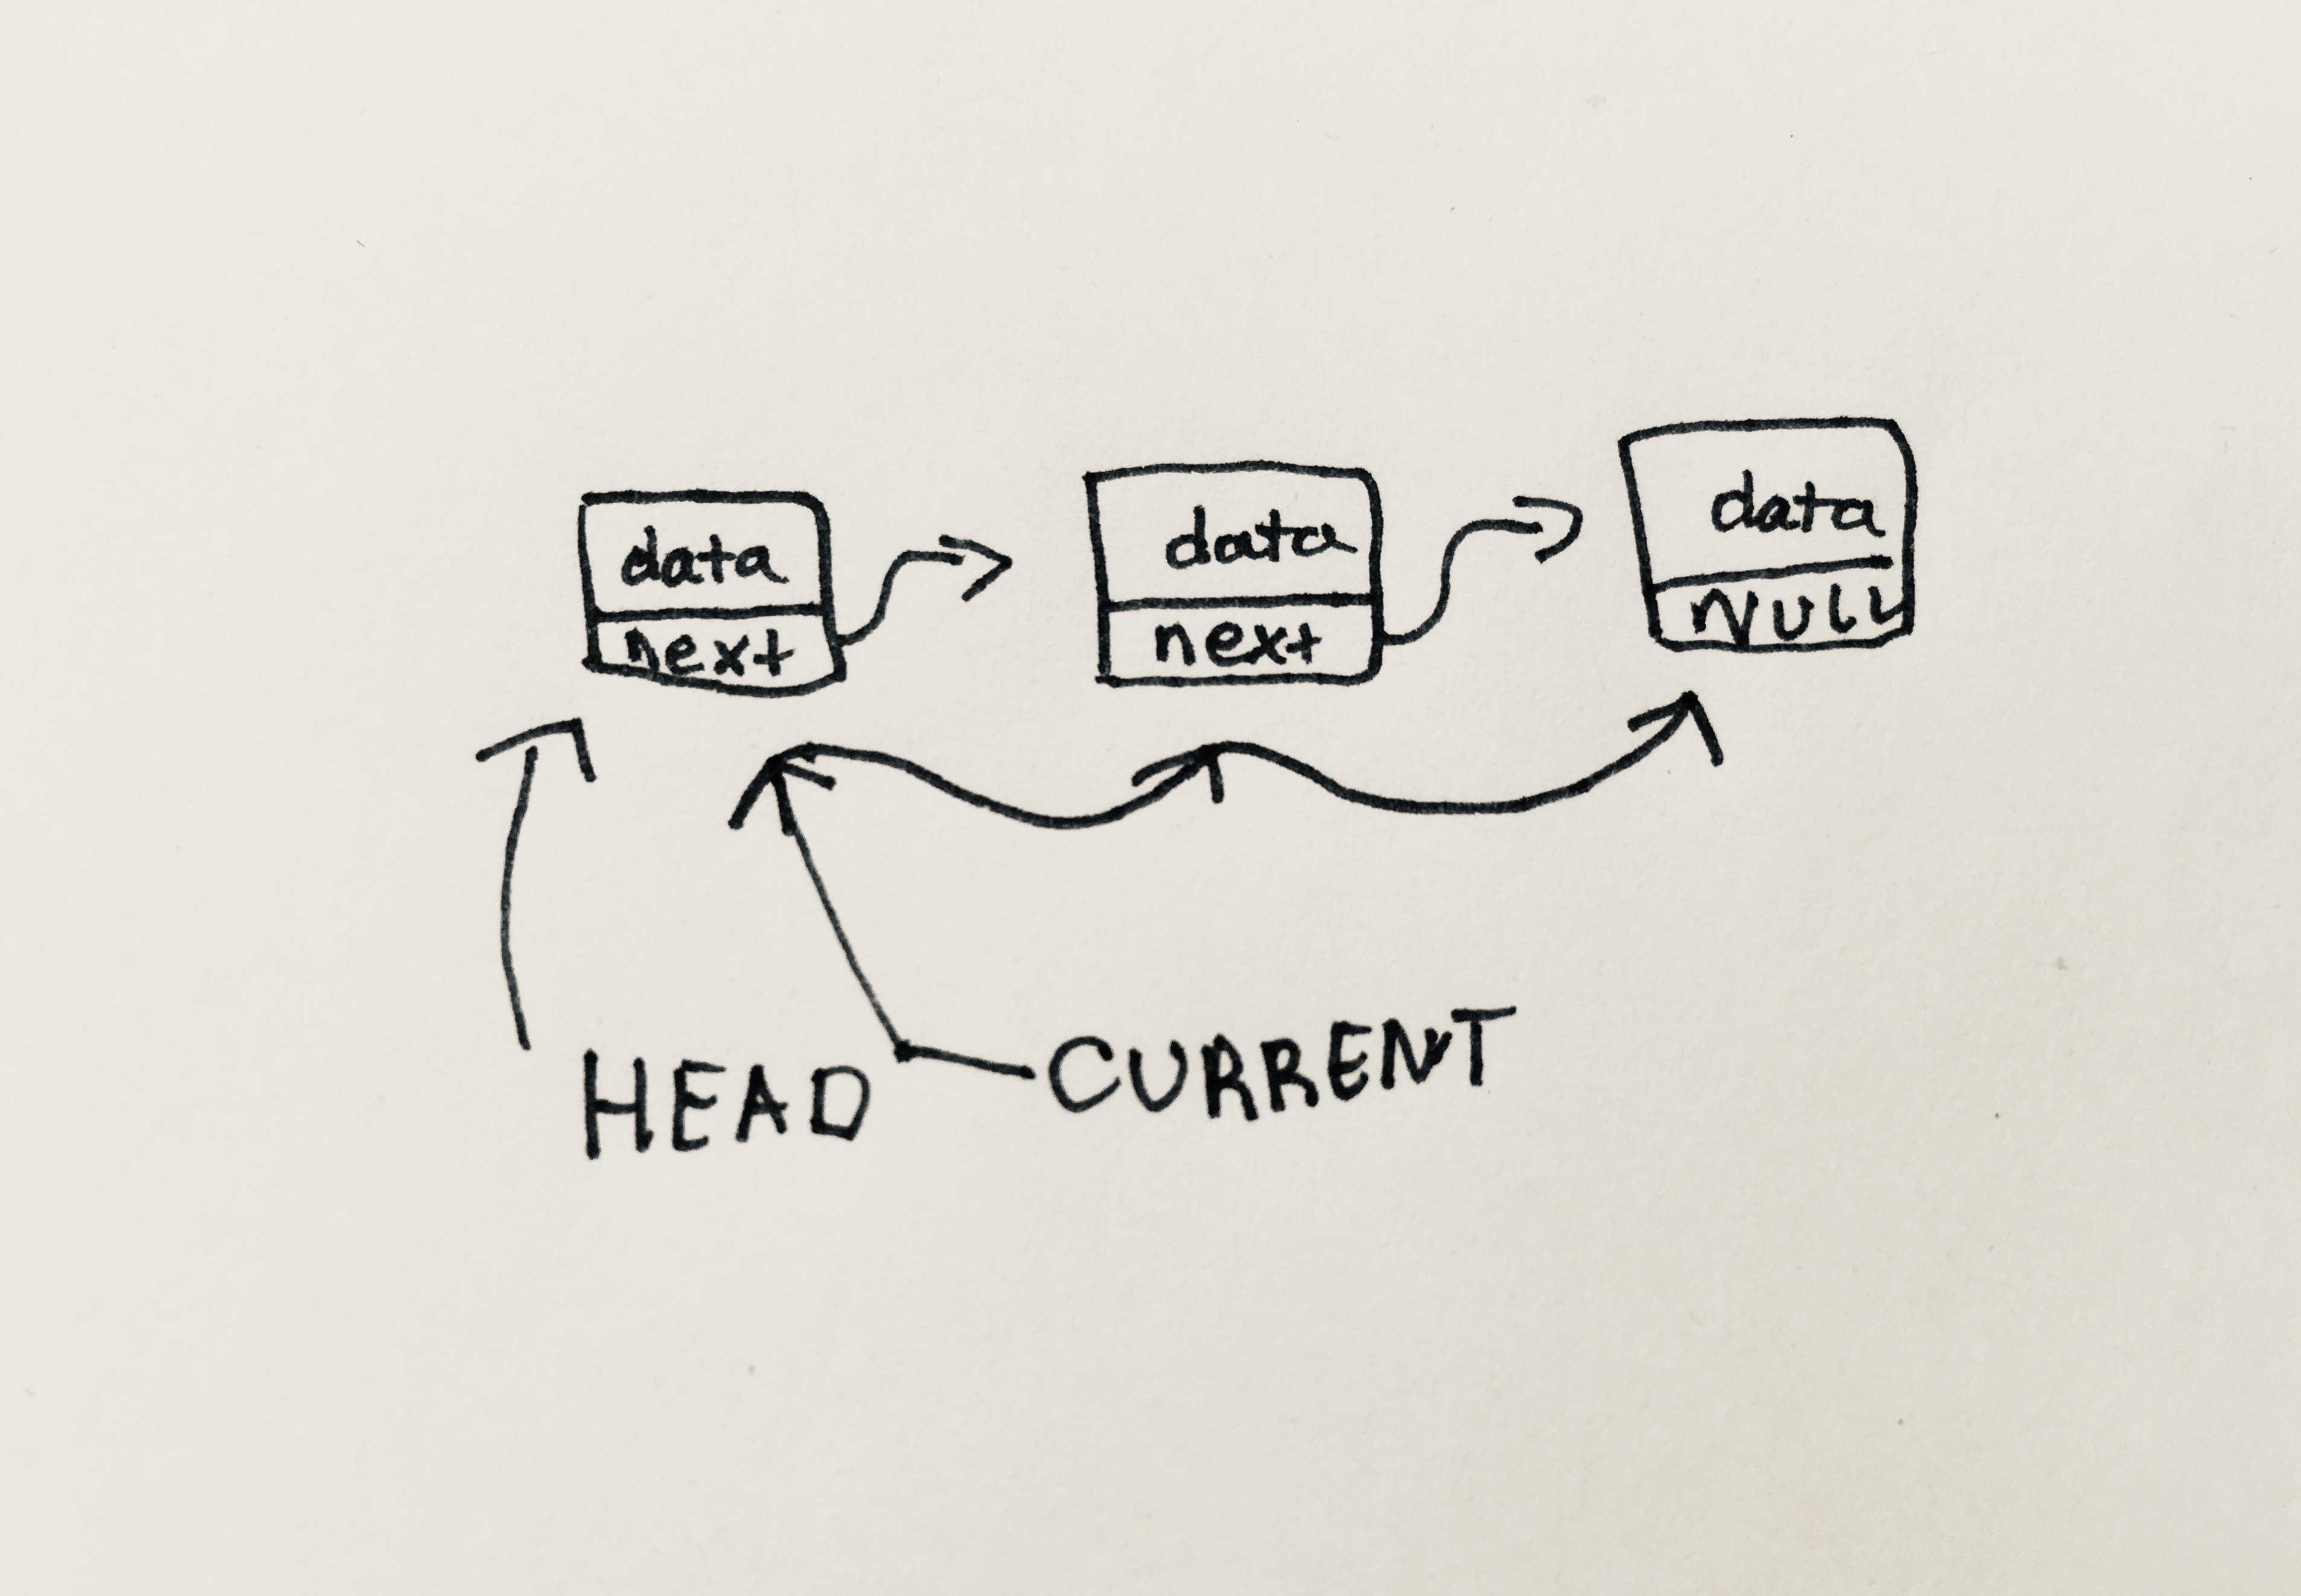 data
next
data
next
data
NULL
HEAD
CURRENT